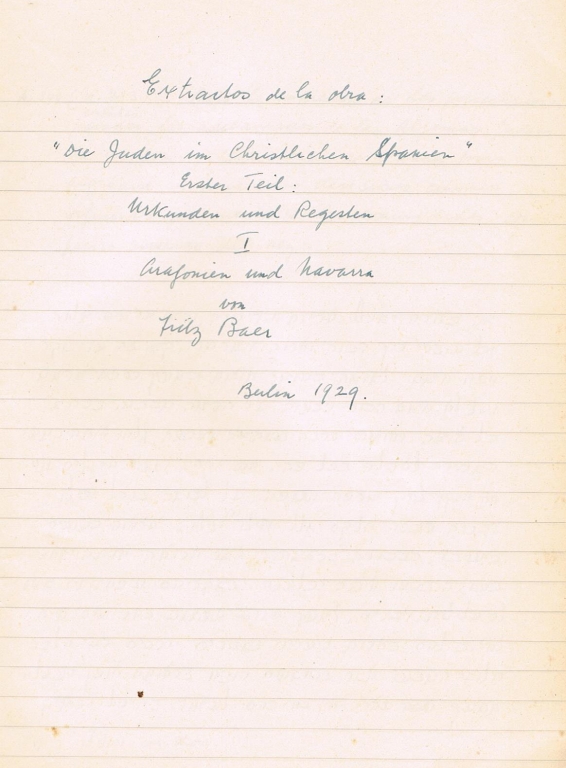 Extractos de la obra:
"Die Juden im Christlichen Spanien"
Erster Teil:
Urkunden und Regesten
I
Aragonien und Navarra
von
Fritz Baer
Berlin 1929.